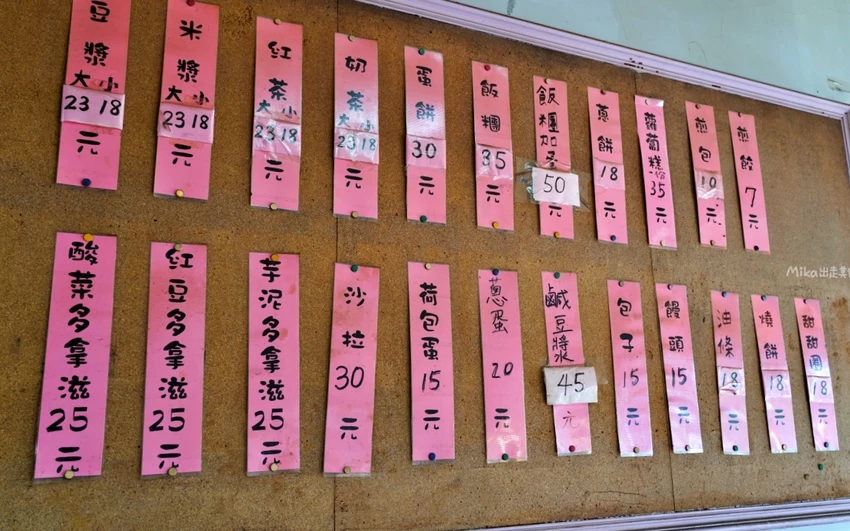 豆漿大小 23 18 元
米漿大小 23 18 元
紅茶大小 23 18 元
奶茶大小 23 18 元
蛋餅 30 元
飯糰 35 元
飯糰加蛋 50 元
蔥餅 18 元
蘿蔔糕 35 元
煎包 10 元
煎餃 7 元
酸菜多拿滋 25 元
紅豆多拿滋 25 元
芋泥多拿滋 25 元
沙拉 30 元
荷包蛋 15 元
蔥蛋 20 元
鹹豆漿 45 元
包子 15 元
饅頭 15 元
油條 18 元
燒餅 18 元
甜甜圈 18 元
Mika出走美